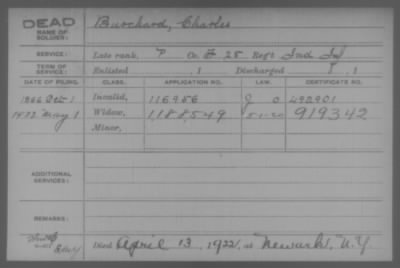 DEAD
NAME OF SOLDIER:
Burchard, Charles
SERVICE:
Late rank, P Co. F 28 Reg't Ind Inf
TERM OF SERVICE:
Enlisted , 1 Discharged , 1
DATE OF FILING. CLASS. APPLICATION NO. LAW. CERTIFICATE NO.
1886 Oct 1 Invalid, 116956
May 1 Widow, 1188549 919342
Minor,
ADDITIONAL SERVICES:
REMARKS:
Died April 13, 1922, at Newark, N.Y.